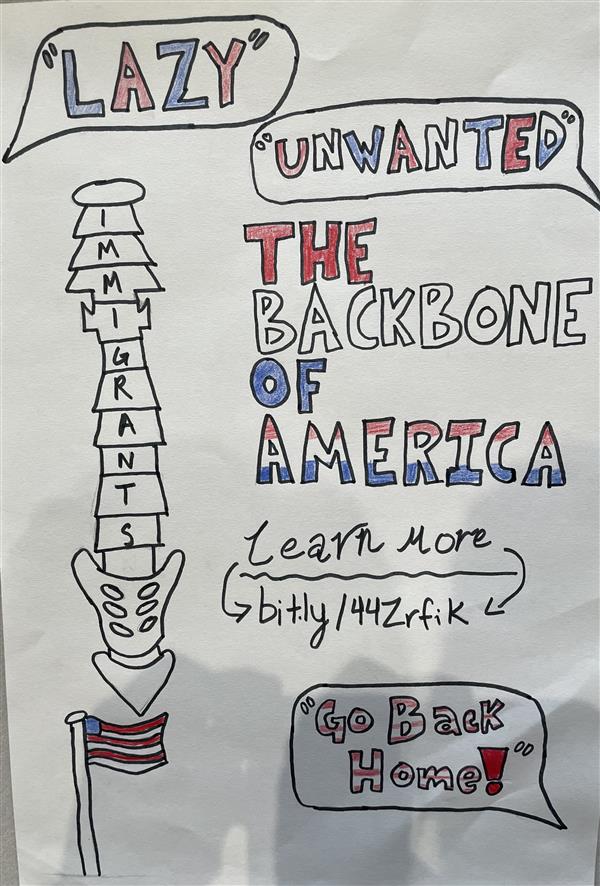 "LAZY"
"UNWANTED"
IMMIGRANTS
THE
BACKBONE
OF
AMERICA
Learn More
bit.ly/44Zrfik
"Go Back
Home!"